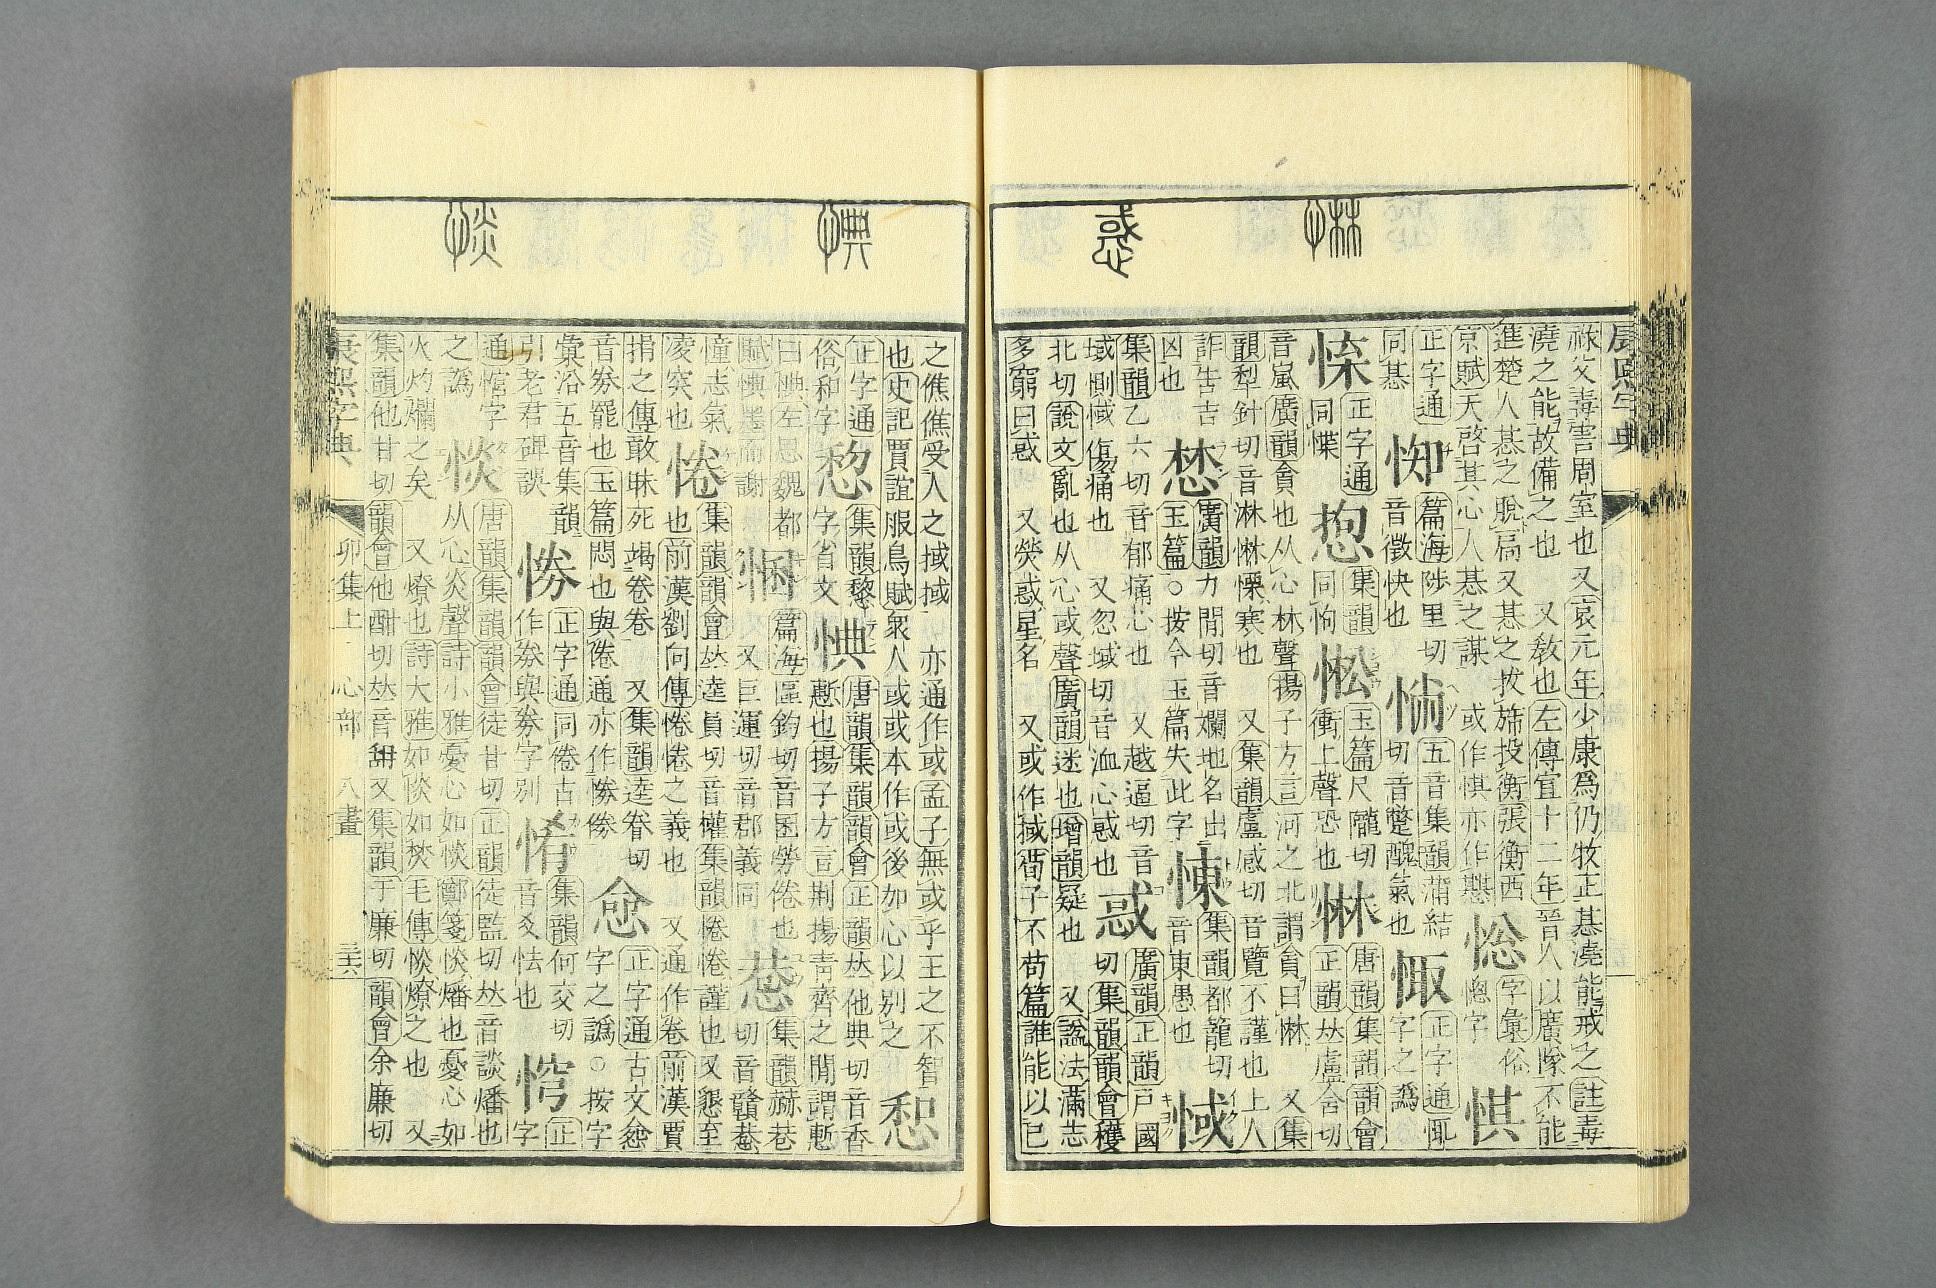 康熙字典
祿父毒害周室也又哀元年少康爲仍牧正惎澆能戒之註毒
澆之能故備之也 又敎也左傳宣十二年晉人以廣隊不能
進楚人惎之脫扃又惎之拔旆投衡張衡西
京賦天啓其心人惎之謀 或作惧亦作諅
字彙俗
惚字
惧
正字通
同惎
篇海陟里切
音徵快也
五音集韻蒲結
切音蹩醜氣也
正字通
字之譌
正字通
同惵
集韻
同恟
玉篇尺隴切
衝上聲恐也
惏
唐韻集韻韻會
正韻𠀤盧含切
音嵐廣韻貪也从心林聲揚子方言河之北謂貪曰惏 又集
韻犁針切音淋惏慄寒也 又集韻盧感切音覽不謹也上人
詐吿吉
凶也
廣韻力閒切音斕地名出
玉篇○按今玉篇失此字
集韻都籠切
音東愚也
惐
集韻乙六切音郁痛心也 又越逼切音
域惻惐傷痛也 又忽域切音洫心惑也
惑
廣韻正韻戸國
切集韻韻會穫
北切說文亂也从心或聲廣韻迷也增韻疑也 又諡法滿志
多窮曰惑 又熒惑星名 又或作惐荀子不苟篇誰能以己
之僬僬受人之掝掝 亦通作或孟子無或乎王之不智
也史記賈誼服鳥賦衆人或或本作或後加心以別之
正字通
俗和字
集韻黎
字省文
惧
唐韻集韻韻會正韻𠀤他典切音香
慙也揚子方言荆揚靑齊之閒謂慙
曰惧左思魏都
賦惧墨而謝
惃
篇海區鈞切音囷勞倦也
又巨運切音郡義同
集韻赫巷
切音贛惷
憧志氣
凌突也
惓
集韻韻會𠀤逵員切音權集韻惓惓謹也又懇至
也前漢劉向傳惓惓之義也 又通作卷前漢賈
捐之傳敢昧死竭卷卷 又集韻逵眷切
音劵罷也玉篇悶也與倦通亦作
正字通古文
字之譌○按字
彙沿五音集韻
引老君碑誤
正字通同倦古
作劵與券字別
集韻何交切
音爻怯也
正
字
通悾字
之譌
惔
唐韻集韻韻會徒甘切正韻徒監切𠀤音談燔也
从心炎聲詩小雅憂心如惔鄭箋惔燔也憂心如
火灼爛之矣 又燎也詩大雅如惔如焚毛傳惔燎之也 又
集韻他甘切韻會他酣切𠀤音甜又集韻于廉切韻會余廉切
康熙字典
卯集上 心部 八畫
三六